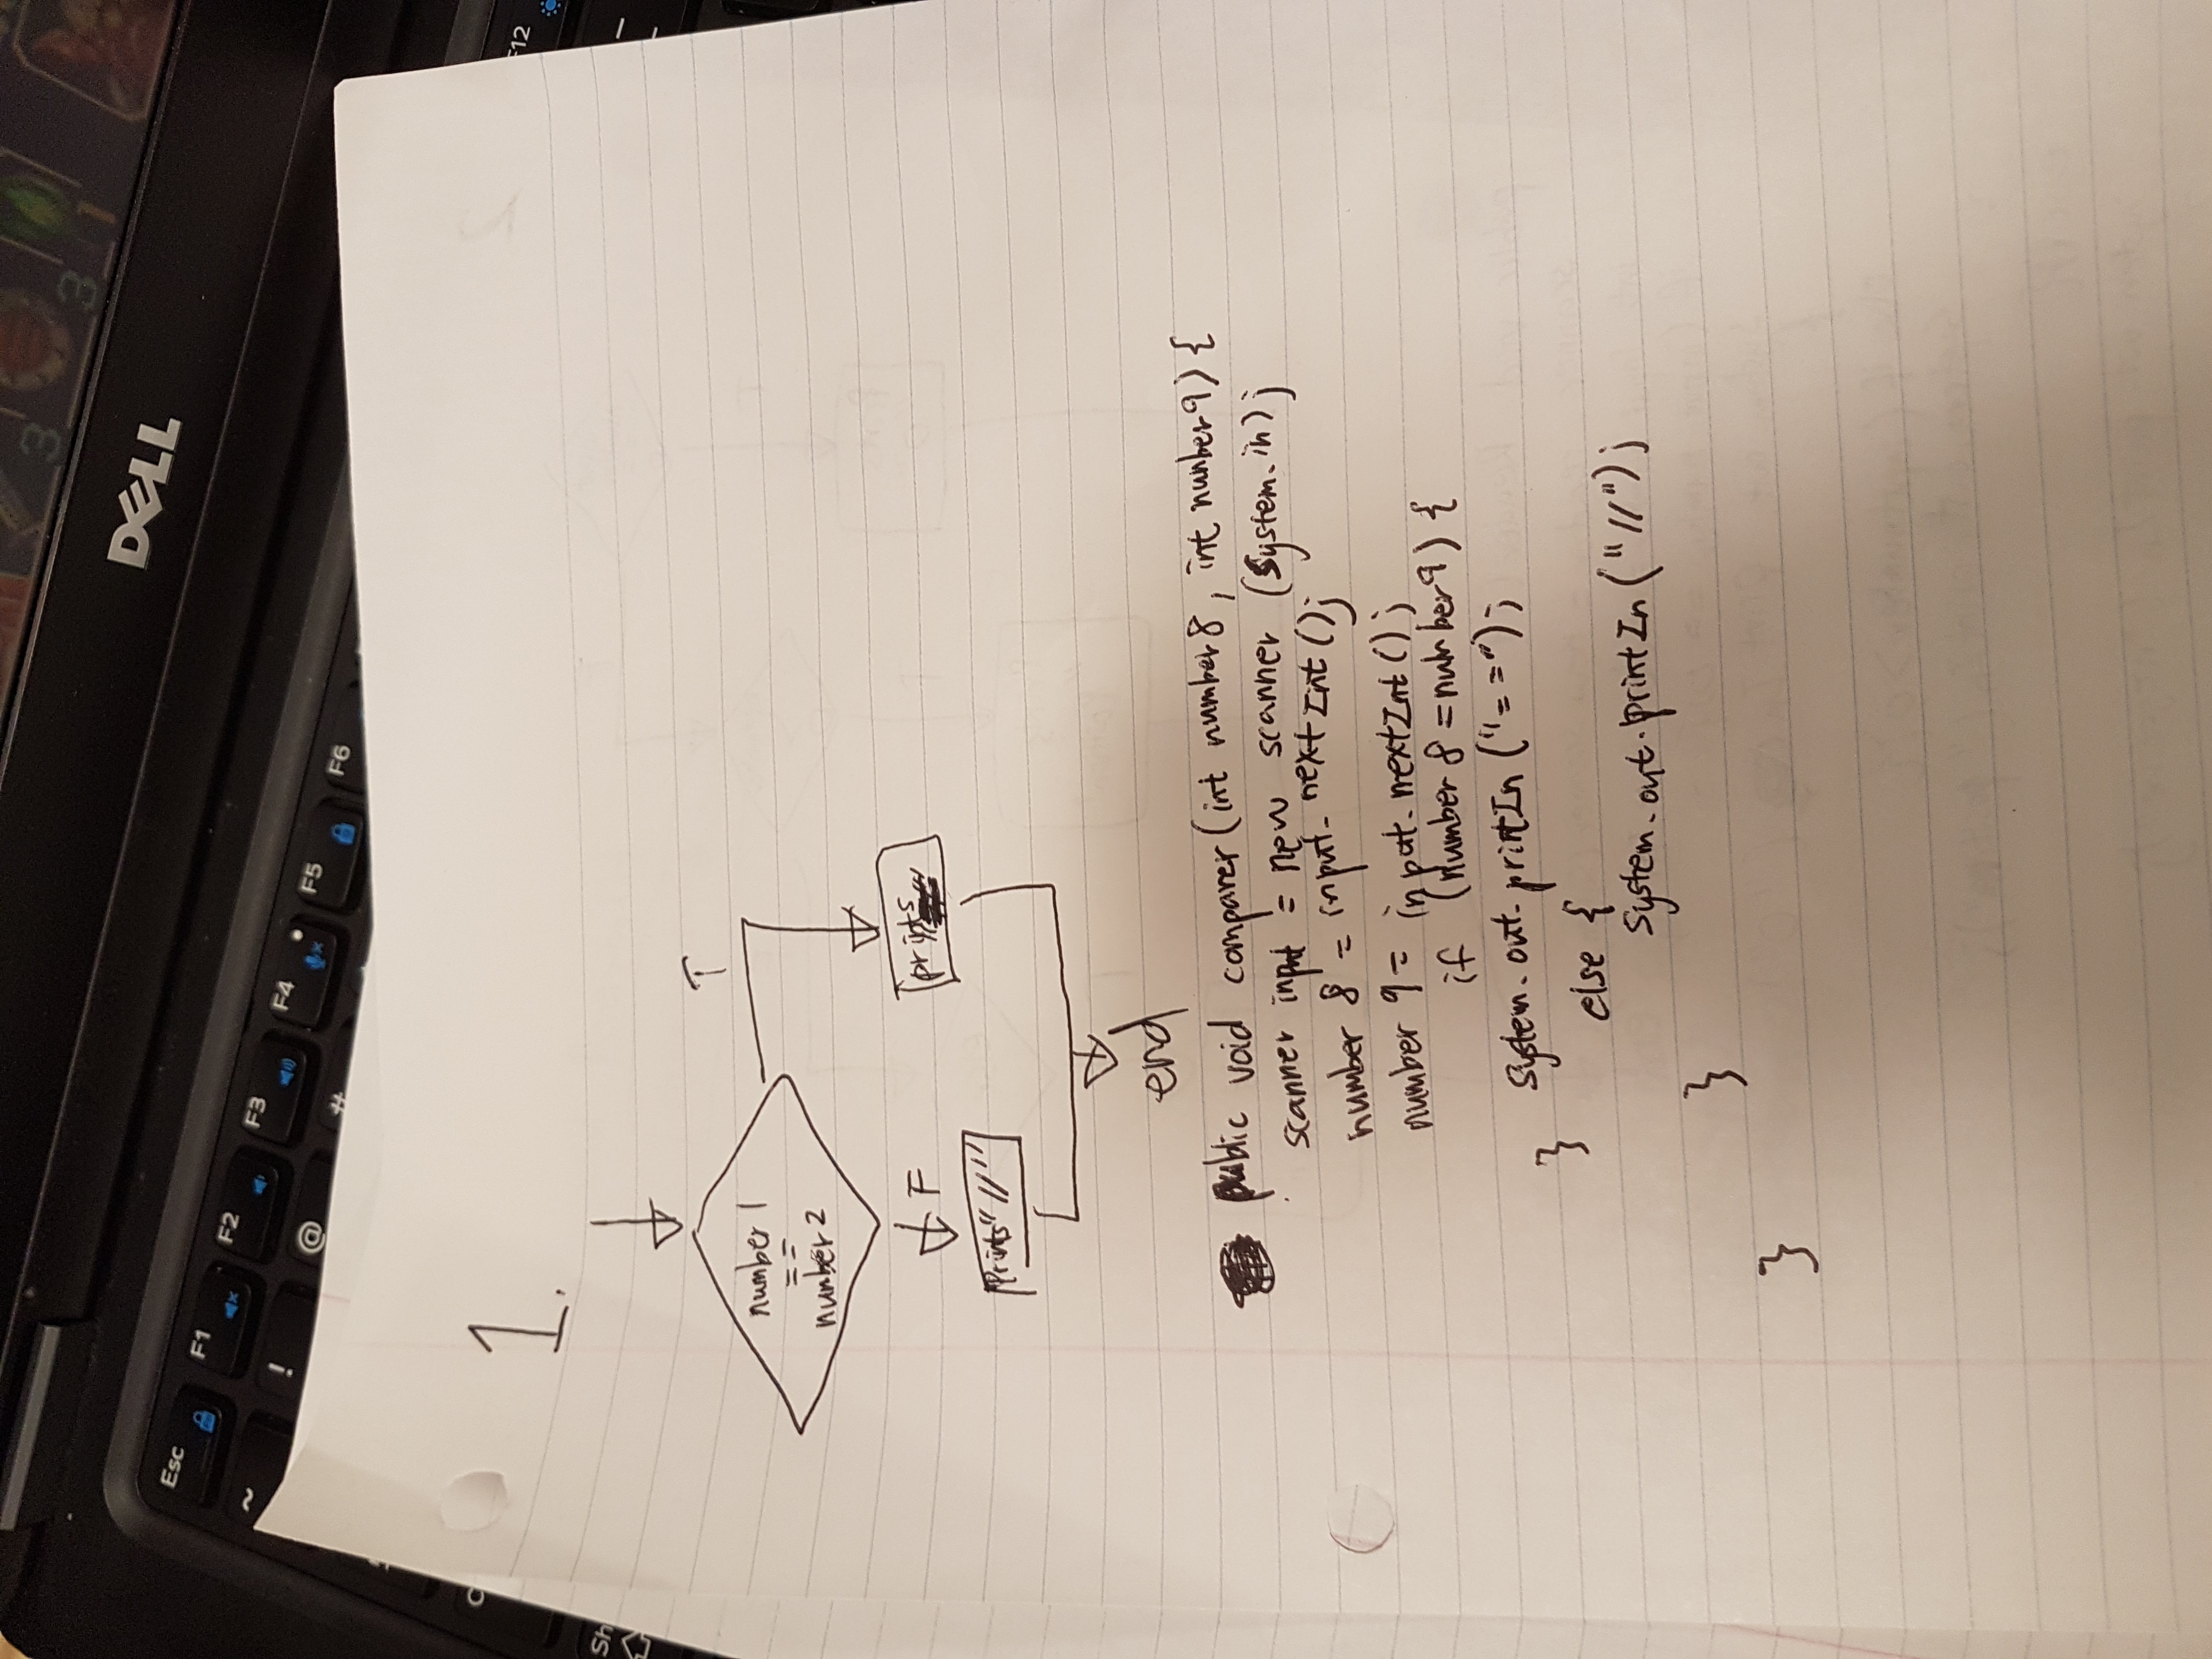 3
3
1
DELL
Esc
F1
F2
F3
F4
F5
F6
~
!
@
#
F12
Sh
1.
T
number 1
==
number 2
F
prints
Prints "//"
end
public void comparer (int number8, int number9) {
scanner input = new scanner (System.in);
number 8 = input. nextInt ();
number 9 = input. nextInt ();
if (number 8 = number9) {
System. out. printIn ("==");
}
else {
System. out. printIn ("//");
}
}